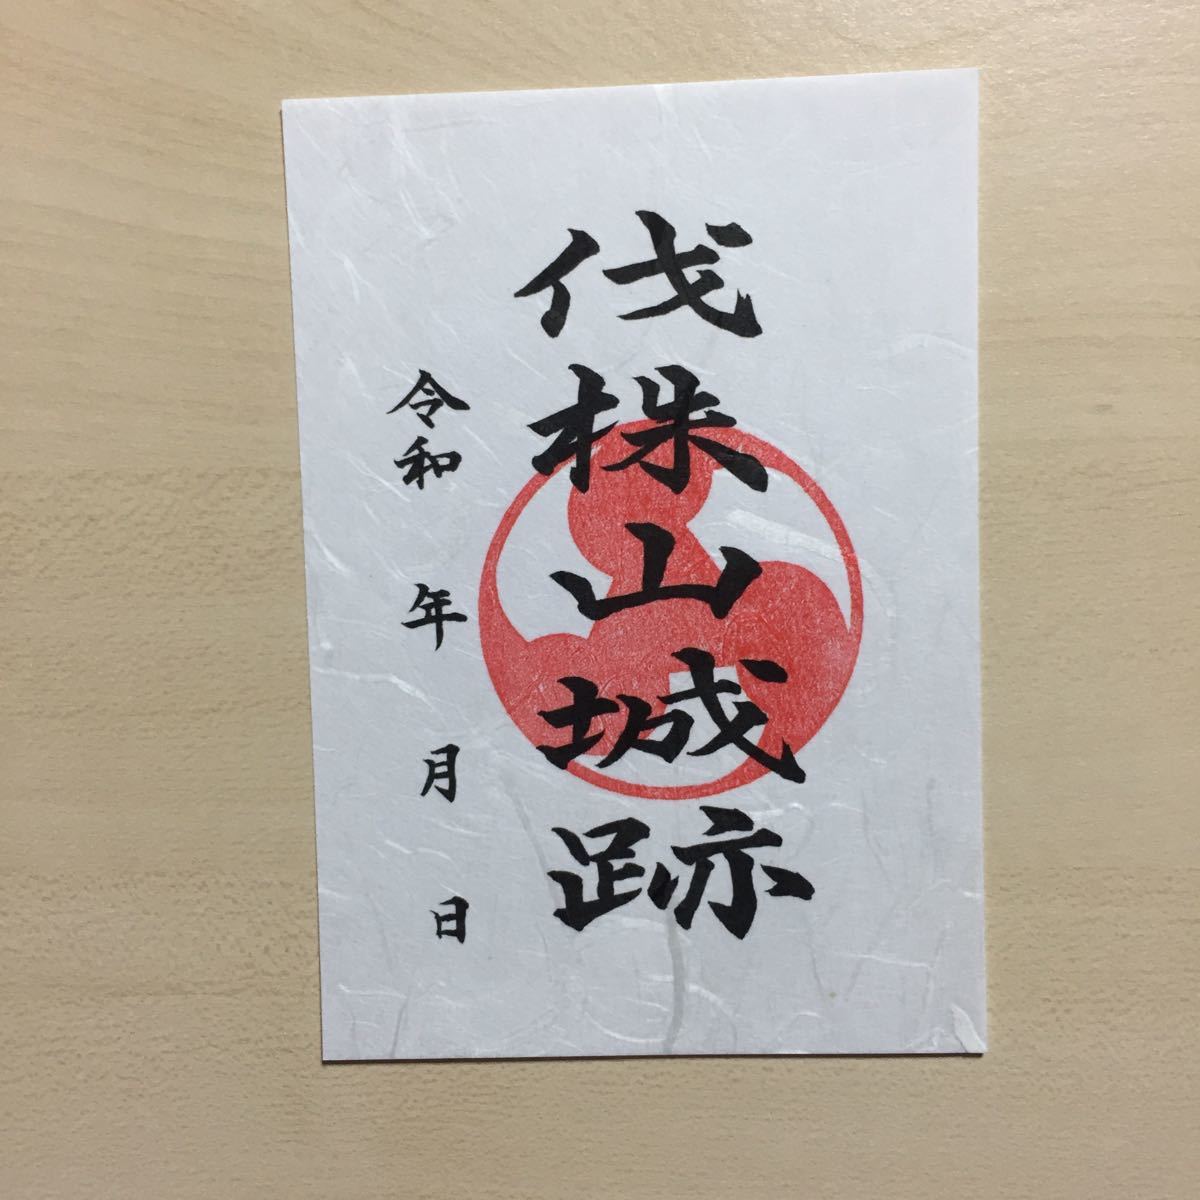 伐株山城跡
令和 年 月 日